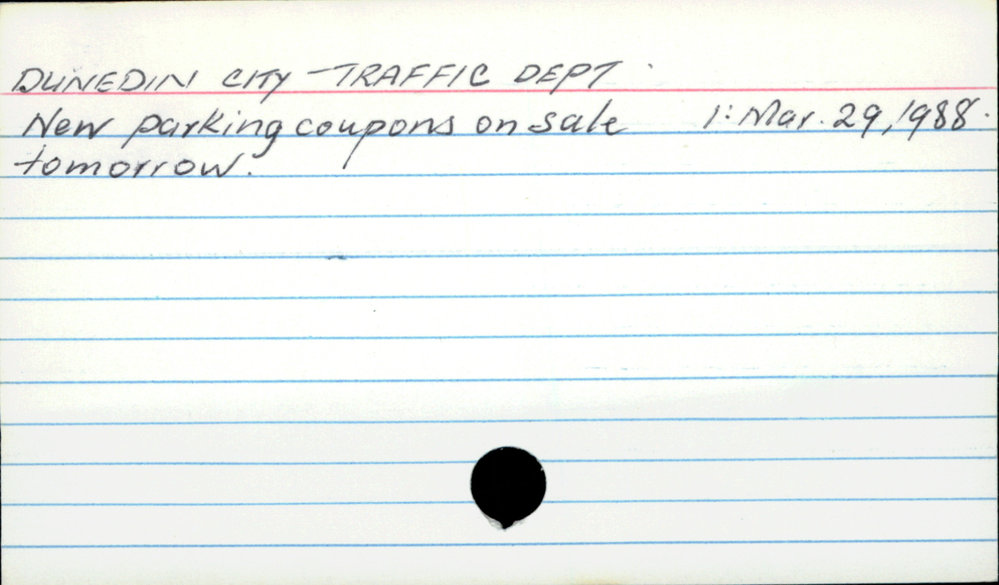 DUNEDIN CITY TRAFFIC DEPT
New parking coupons on sale 1: Mar. 29, 1988.
tomorrow.